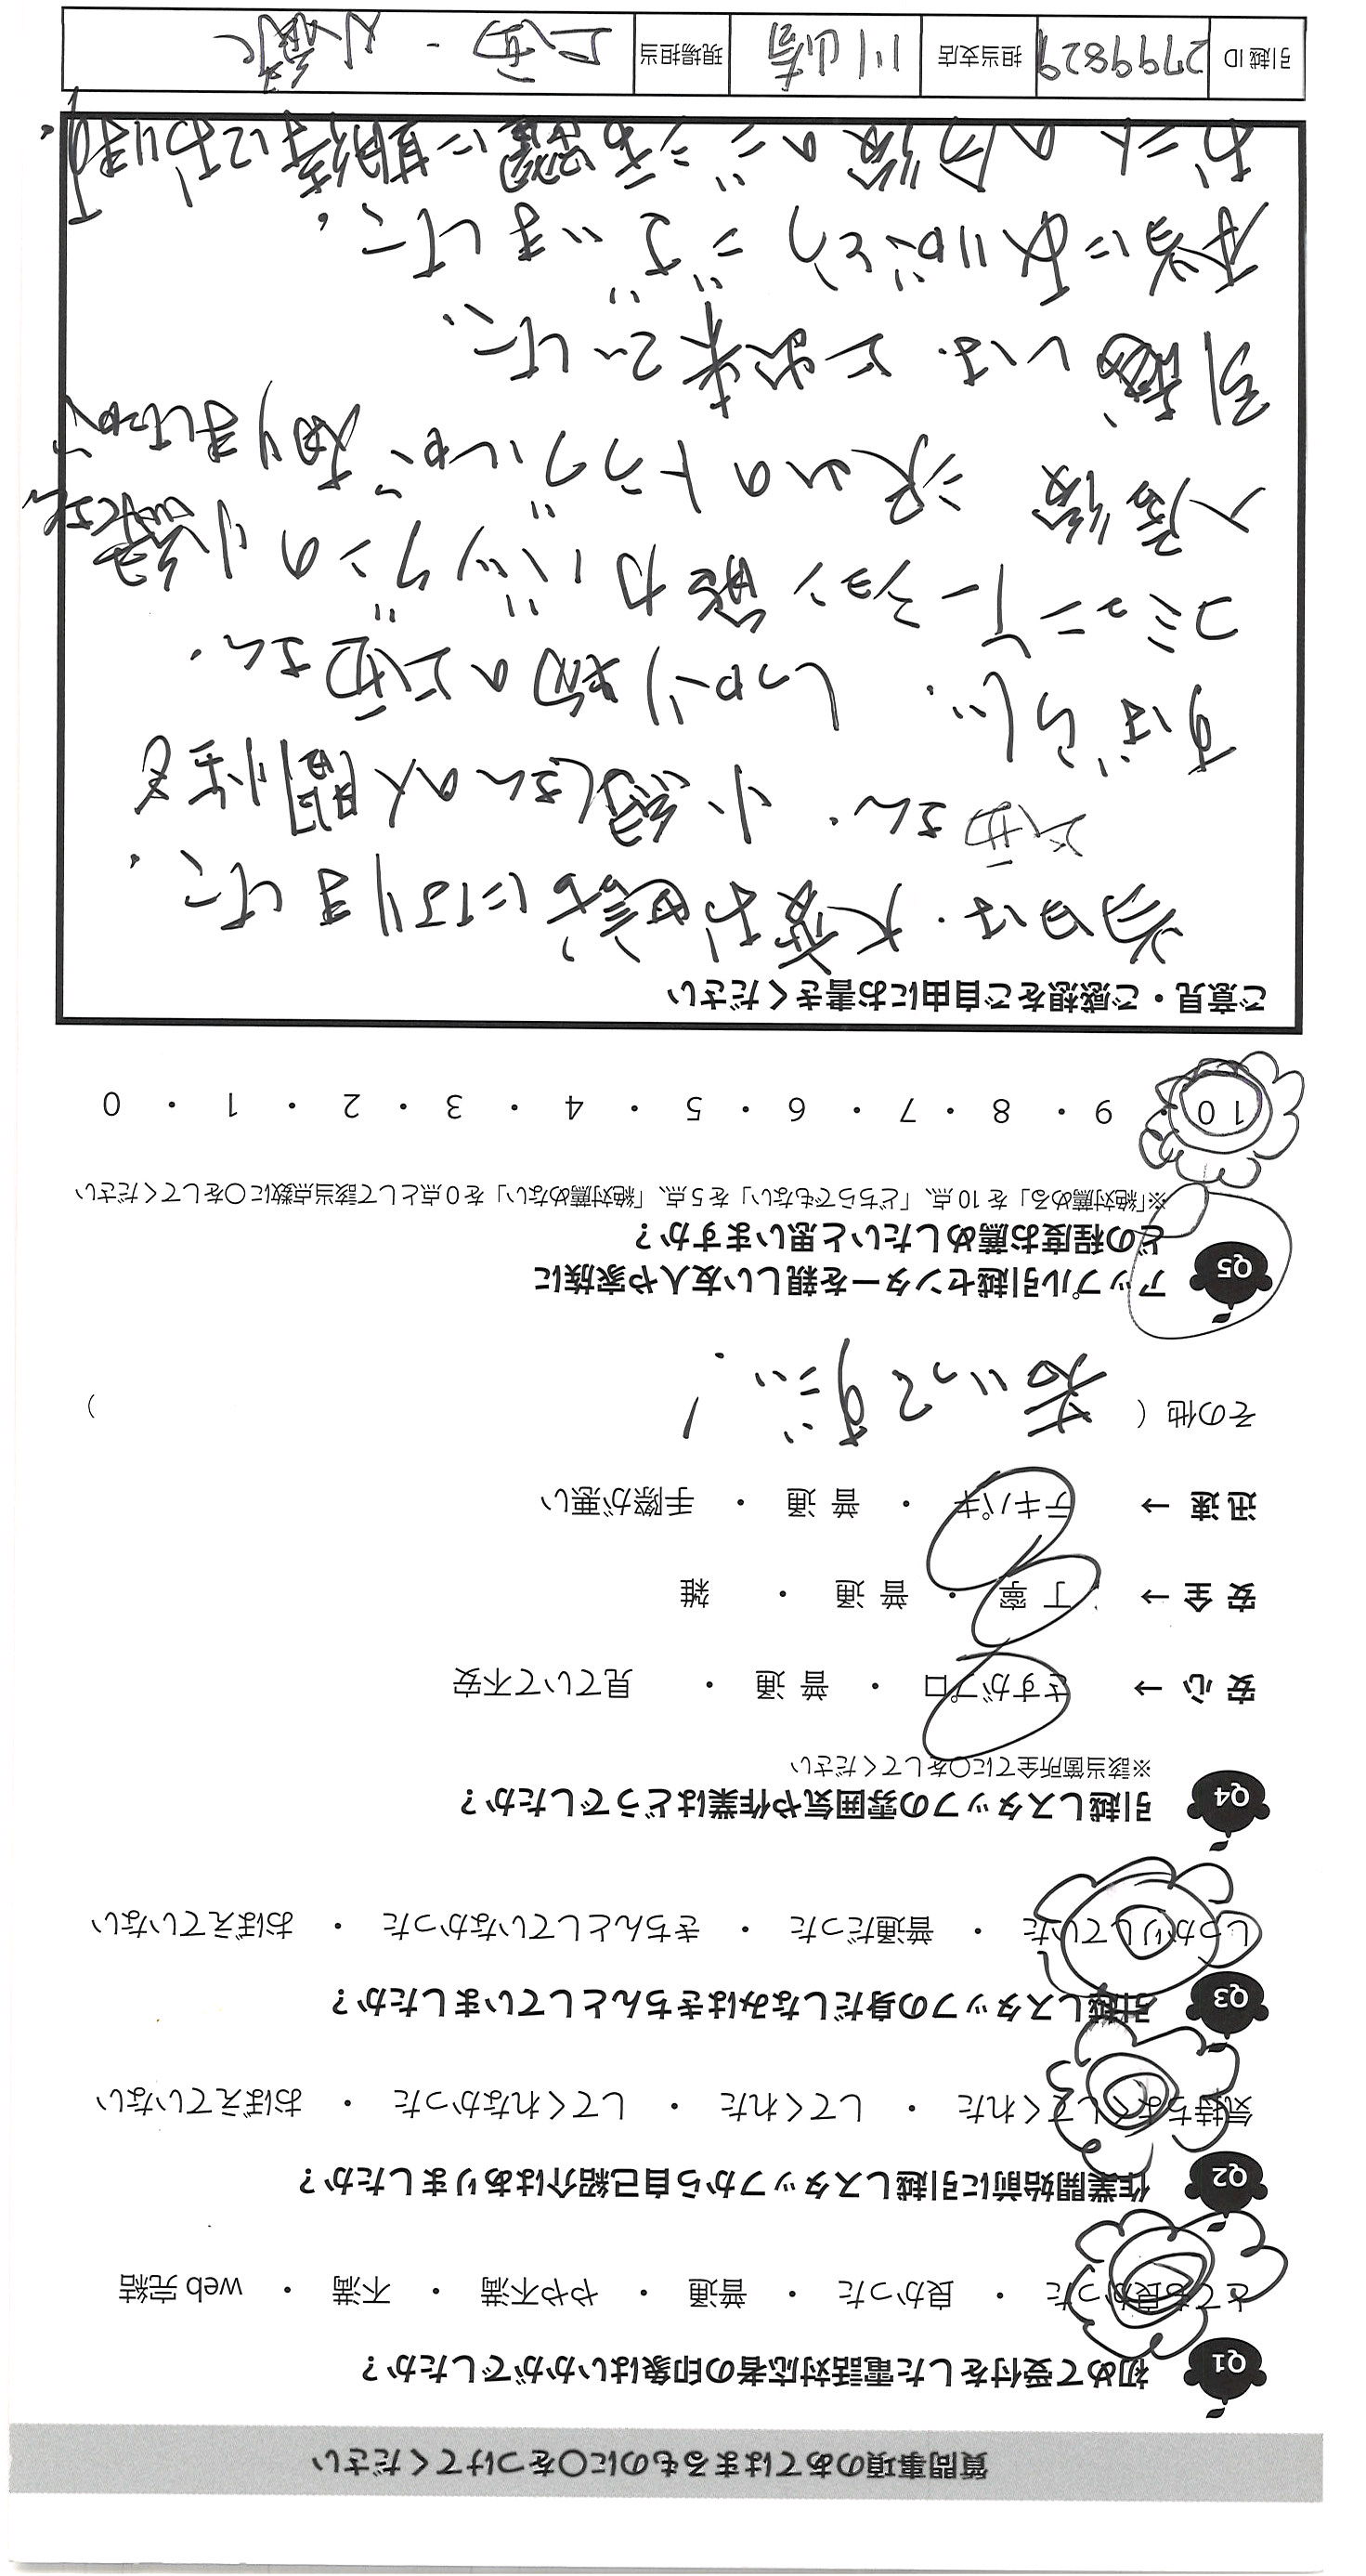 質問事項のあてはまるものに○をつけてください
Q1 初めて受付をした電話対応者の印象はいかがでしたか？
とても良かった ・ 良かった ・ 普通 ・ やや不満 ・ 不満 ・ web 完結
Q2 作業開始前に引越しスタッフから自己紹介はありましたか？
気持ちよくしてくれた ・ してくれた ・ してくれなかった ・ おぼえていない
Q3 引越しスタッフの身だしなみはきちんとしていましたか？
しっかりしていた ・ 普通だった ・ きちんとしていなかった ・ おぼえていない
Q4 引越しスタッフの雰囲気や作業はどうでしたか？
※該当箇所全てに○をしてください
安 心 → さすがプロ ・ 普 通 ・ 見ていて不安
安 全 → 丁 寧 ・ 普 通 ・ 雑
迅 速 → テキパキ ・ 普 通 ・ 手際が悪い
その他（ 若いってすごい！ ）
Q5 アップル引越センターを親しい友人や家族に
どの程度お薦めしたいと思いますか？
※「絶対薦める」を 10 点、「どちらでもない」を 5 点、「絶対薦めない」を 0 点として該当点数に○をしてください
10 ・ 9 ・ 8 ・ 7 ・ 6 ・ 5 ・ 4 ・ 3 ・ 2 ・ 1 ・ 0
ご意見・ご感想をご自由にお書きください
当日は、大変お世話になりました。
上西さん、小鍛さんの人間性も
すばらしい。しっかり者の上西さん、
コミュニケーション能力バツグンの小鍛さん
入居後 沢山のトラブルが有りましたが
引越しは、上出来でした。
本当にありがとうございました。
お二人の今後のご活躍に期待しております。
引越 ID 2799829 担当支店 川崎 現場担当 上西・小鍛